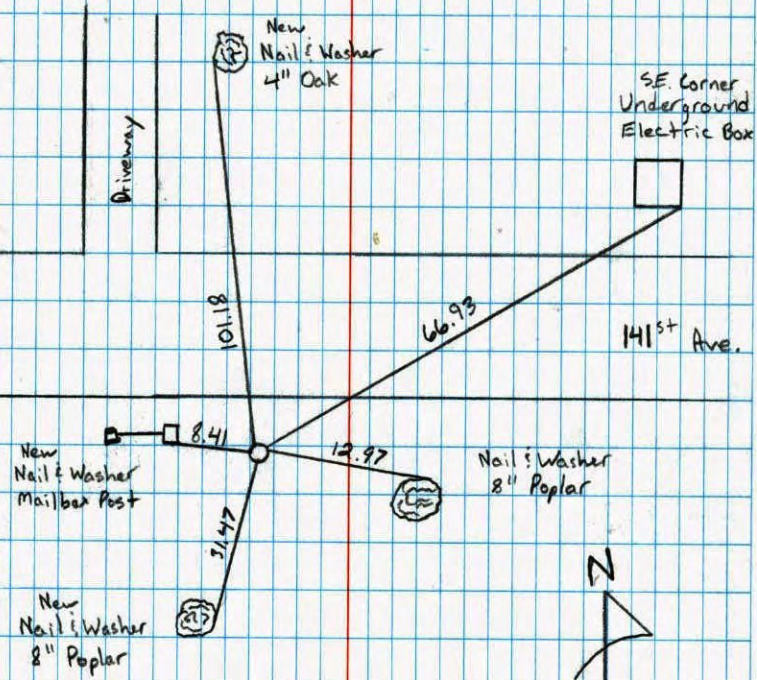 New
Nail & Washer
4" Oak
S.E. Corner
Underground
Electric Box
Driveway
101.18
66.93
141st Ave.
8.41
12.97
New
Nail & Washer
Mailbox Post
Nail & Washer
8" Poplar
31.47
New
Nail & Washer
8" Poplar
N